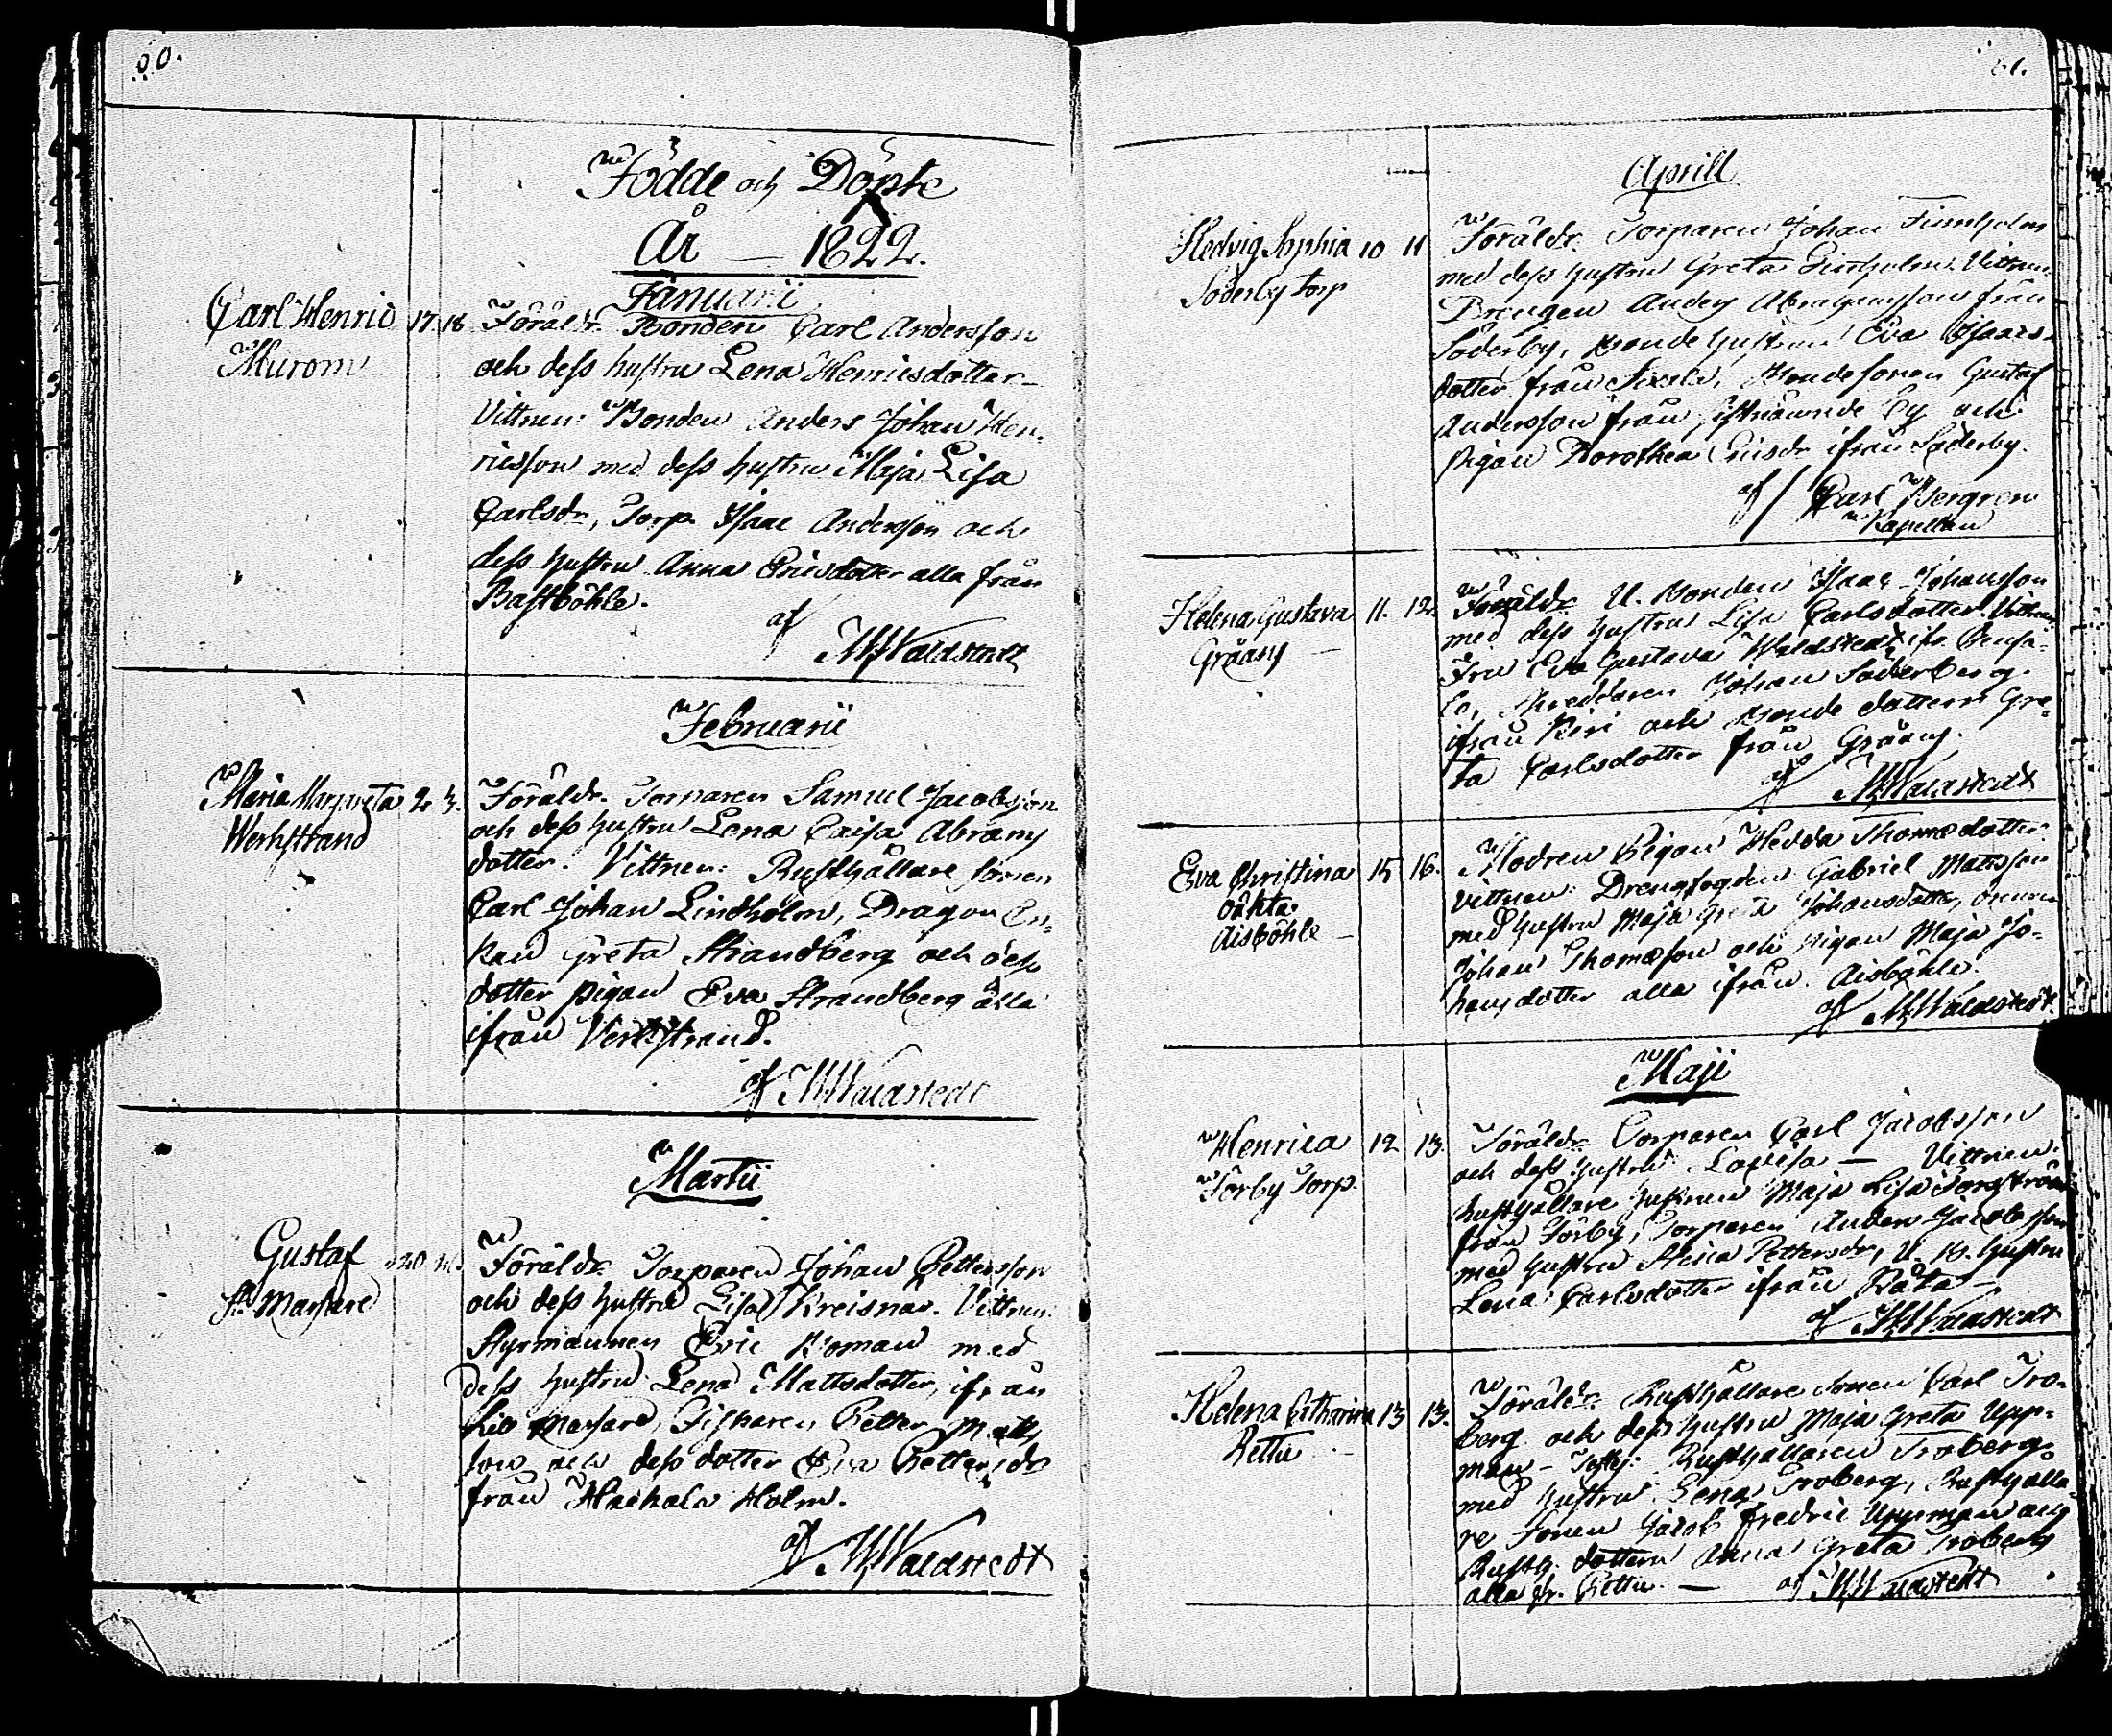 60.
Födde och Döpte
År — 1822.
Januarii
Carl Henric 17. 18 Föräldr. Bonden Carl Andersson
Murom
och dess hustru Lena Henricsdotter
Vittnen: Bonden Anders Johan Hen-
ricsson med dess hustru Maja Lisa
Carlsdr, Torp. Isaac Andersson och
dess hustru Anna Ericsdotter alla från
Bastböhle.
af
Waldstedt
Februarii
Maria Margareta 2. 3. Föräldr. Torparen Samuel Jacobsson
Werkstrand
och dess hustru Lena Caisa Abrams
dotter. Vittnen: Rusthållare sonen
Carl Johan Lindholm, Dragon En-
kan Greta Strandberg och dess
dotter pigan Eva Strandberg alla
ifrån Verkstrand.
af Waldstedt
Martii
Gustaf 20 Föräldr. Torparen Johan Pettersson
St. Marsare
och dess hustru Lisa Vittnen:
Styrmannen Eric Boman med
dess hustru Lena Mattsdotter, ifrån
Marsare, Fiskaren Petter Matts
son och dess dotter Eva Pettersdr
från Holm.
af Waldstedt
61.
Aprill
Hedvig Sophia 10 11 Föräldr. Torparen Johan Finnholm
Söderby torp
med dess hustru Greta Vittnen:
Drengen Anders Abrahamsson från
Söderby, Bonde hustrun Eva Isaacs-
dotter från Bondesonen Gustaf
Andersson från by och
pigan Dorothea Ericsdr ifrån Söderby.
af Carl Bergren
Kapellan
Helena Gustava 11. 12. Föräldr. U. Bonden Isaac Johansson
Gräsny
med dess hustru Lisa Carlsdotter. Vittnen:
Fru Eva Gustava Waldstedt
Skreddaren Johan Söderberg
ifrån och Bonde dottern Gre-
ta Carlsdotter från Gräsny.
af Waldstedt
Eva Christina 15 16. Modren Pigan Hedda Thomædotter
oäkta
Aisböhle
Vittnen: Drengfogden Gabriel Mattsson
med hustru Maja Greta Johansdotter,
Johan Thomæson och pigan Maja Jo-
hansdotter alla ifrån Aisböhle.
af Waldstedt.
Maji
Henrica 12 13. Föräldr. Torparen Carl Jacobsson
Förby Torp.
och dess hustru Lovisa — Vittnen:
Rusthållare hustrun Maja Lisa
från Förby, Torparen Anders Jacobsson
med hustru Stina Pettersdr, U. B. hustru
Lena Carlsdotter ifrån Råta
af Waldstedt
Helena Catharina 13 13. Föräldr. Rusthållare sonen Carl Tro-
Pettu
berg och dess hustru Maja Greta Upp-
man — Rusthållaren Troberg
med hustru Lena Troberg, Rusthålla-
re Sonen Jacob Fredric Uppman och
Rusth. dottern Anna Greta Troberg
alla fr. Pettu. — af Waldstedt